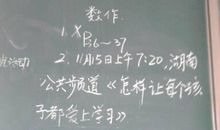 数作.
1. P36~37
2. 11月15日上午7:20,湖南
公共频道《怎样让每个孩
子都爱上学习》.